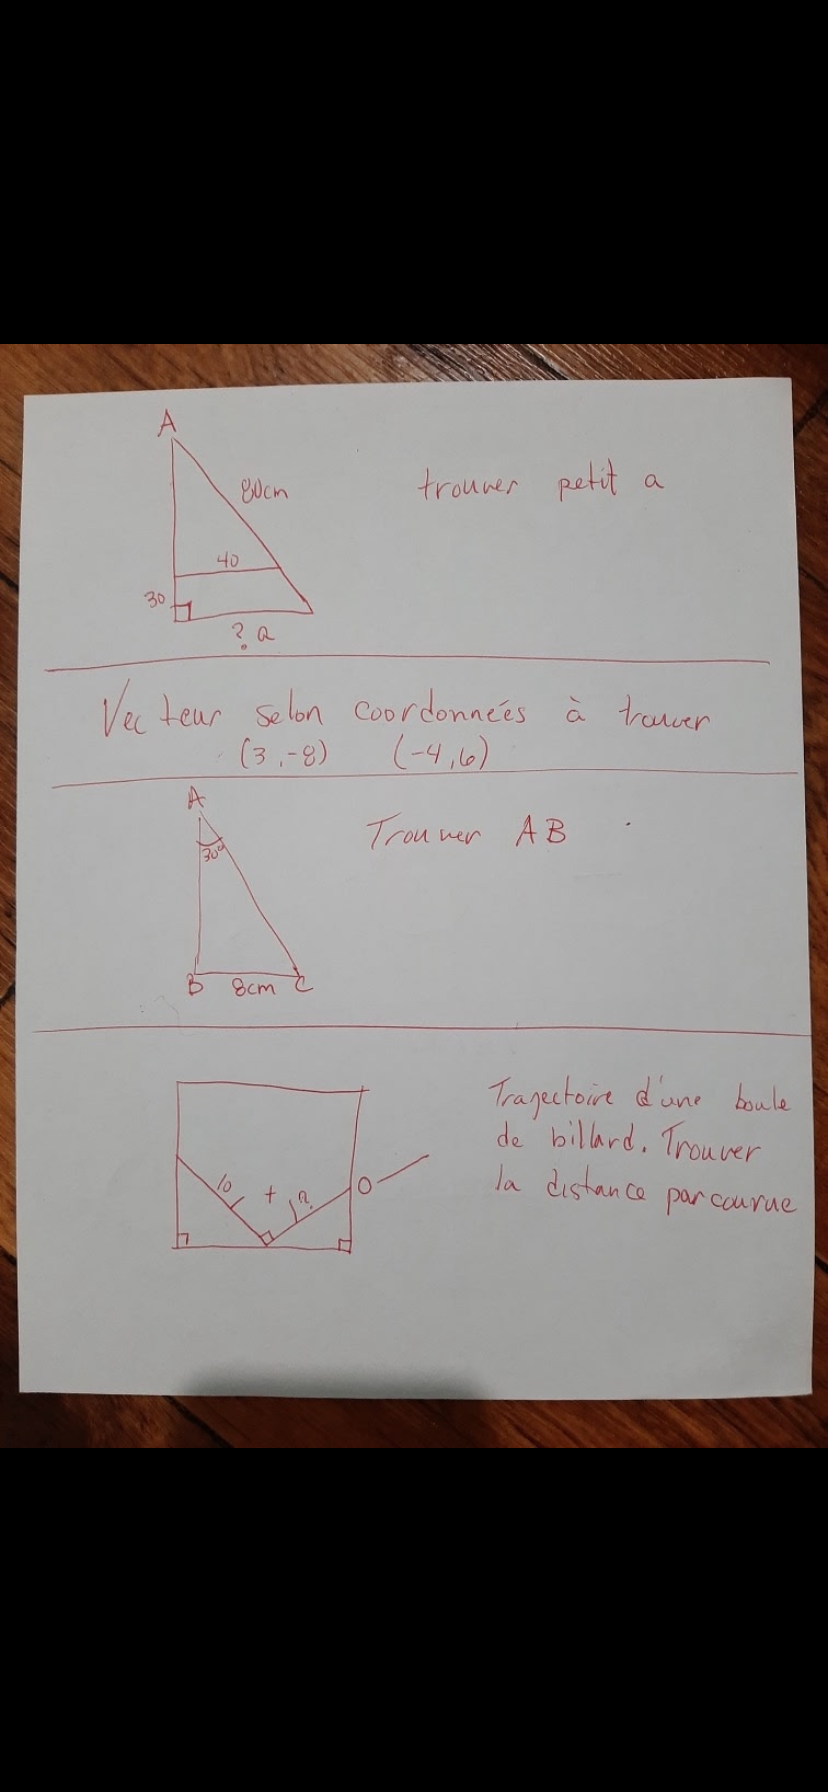 A
80cm
trouver petit a
40
30
? a
Vecteur selon coordonnées à trouver
(3,-8) (-4,6)
A
30°
Trouver AB
B 8cm C
Trajectoire d'une boule
de billard. Trouver
la distance parcourue
10 + ?